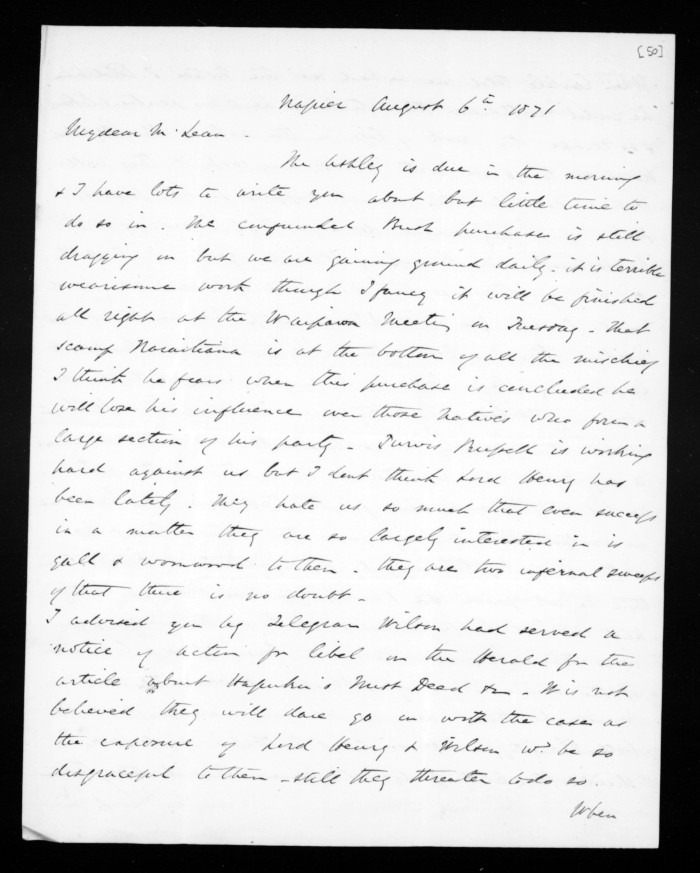 [50]
Napier August 6th 1871
My dear McLean.
The Ashley is due in the morning
& I have lots to write you about but little time to
do so in. The confounded Bush purchase is still
dragging on but we are gaining ground daily. it is terrible
wearisome work though I fancy it will be finished
all right at the Waipawa Meeting on Tuesday - That
scamp Karaitiana is at the bottom of all the mischief
I think he fears when this purchase is concluded he
will lose his influence over those Natives who form a
large section of his party - Purvis Russell is working
hard against us but I dont think Lord Henry has
been lately. They hate us so much that even success
in a matter they are so largely interested in is
gall & wormwood to them - they are two infernal sweeps
of that there is no doubt -
I advised you by Telegram Wilson had served a
notice of action for libel on the Herald for the
article about Hapuku's Trust Deed &c - It is not
believed they will dare go on with the case as
the exposure of Lord Henry & Wilson wd. be so
disgraceful to them - still they threaten to do so.
When